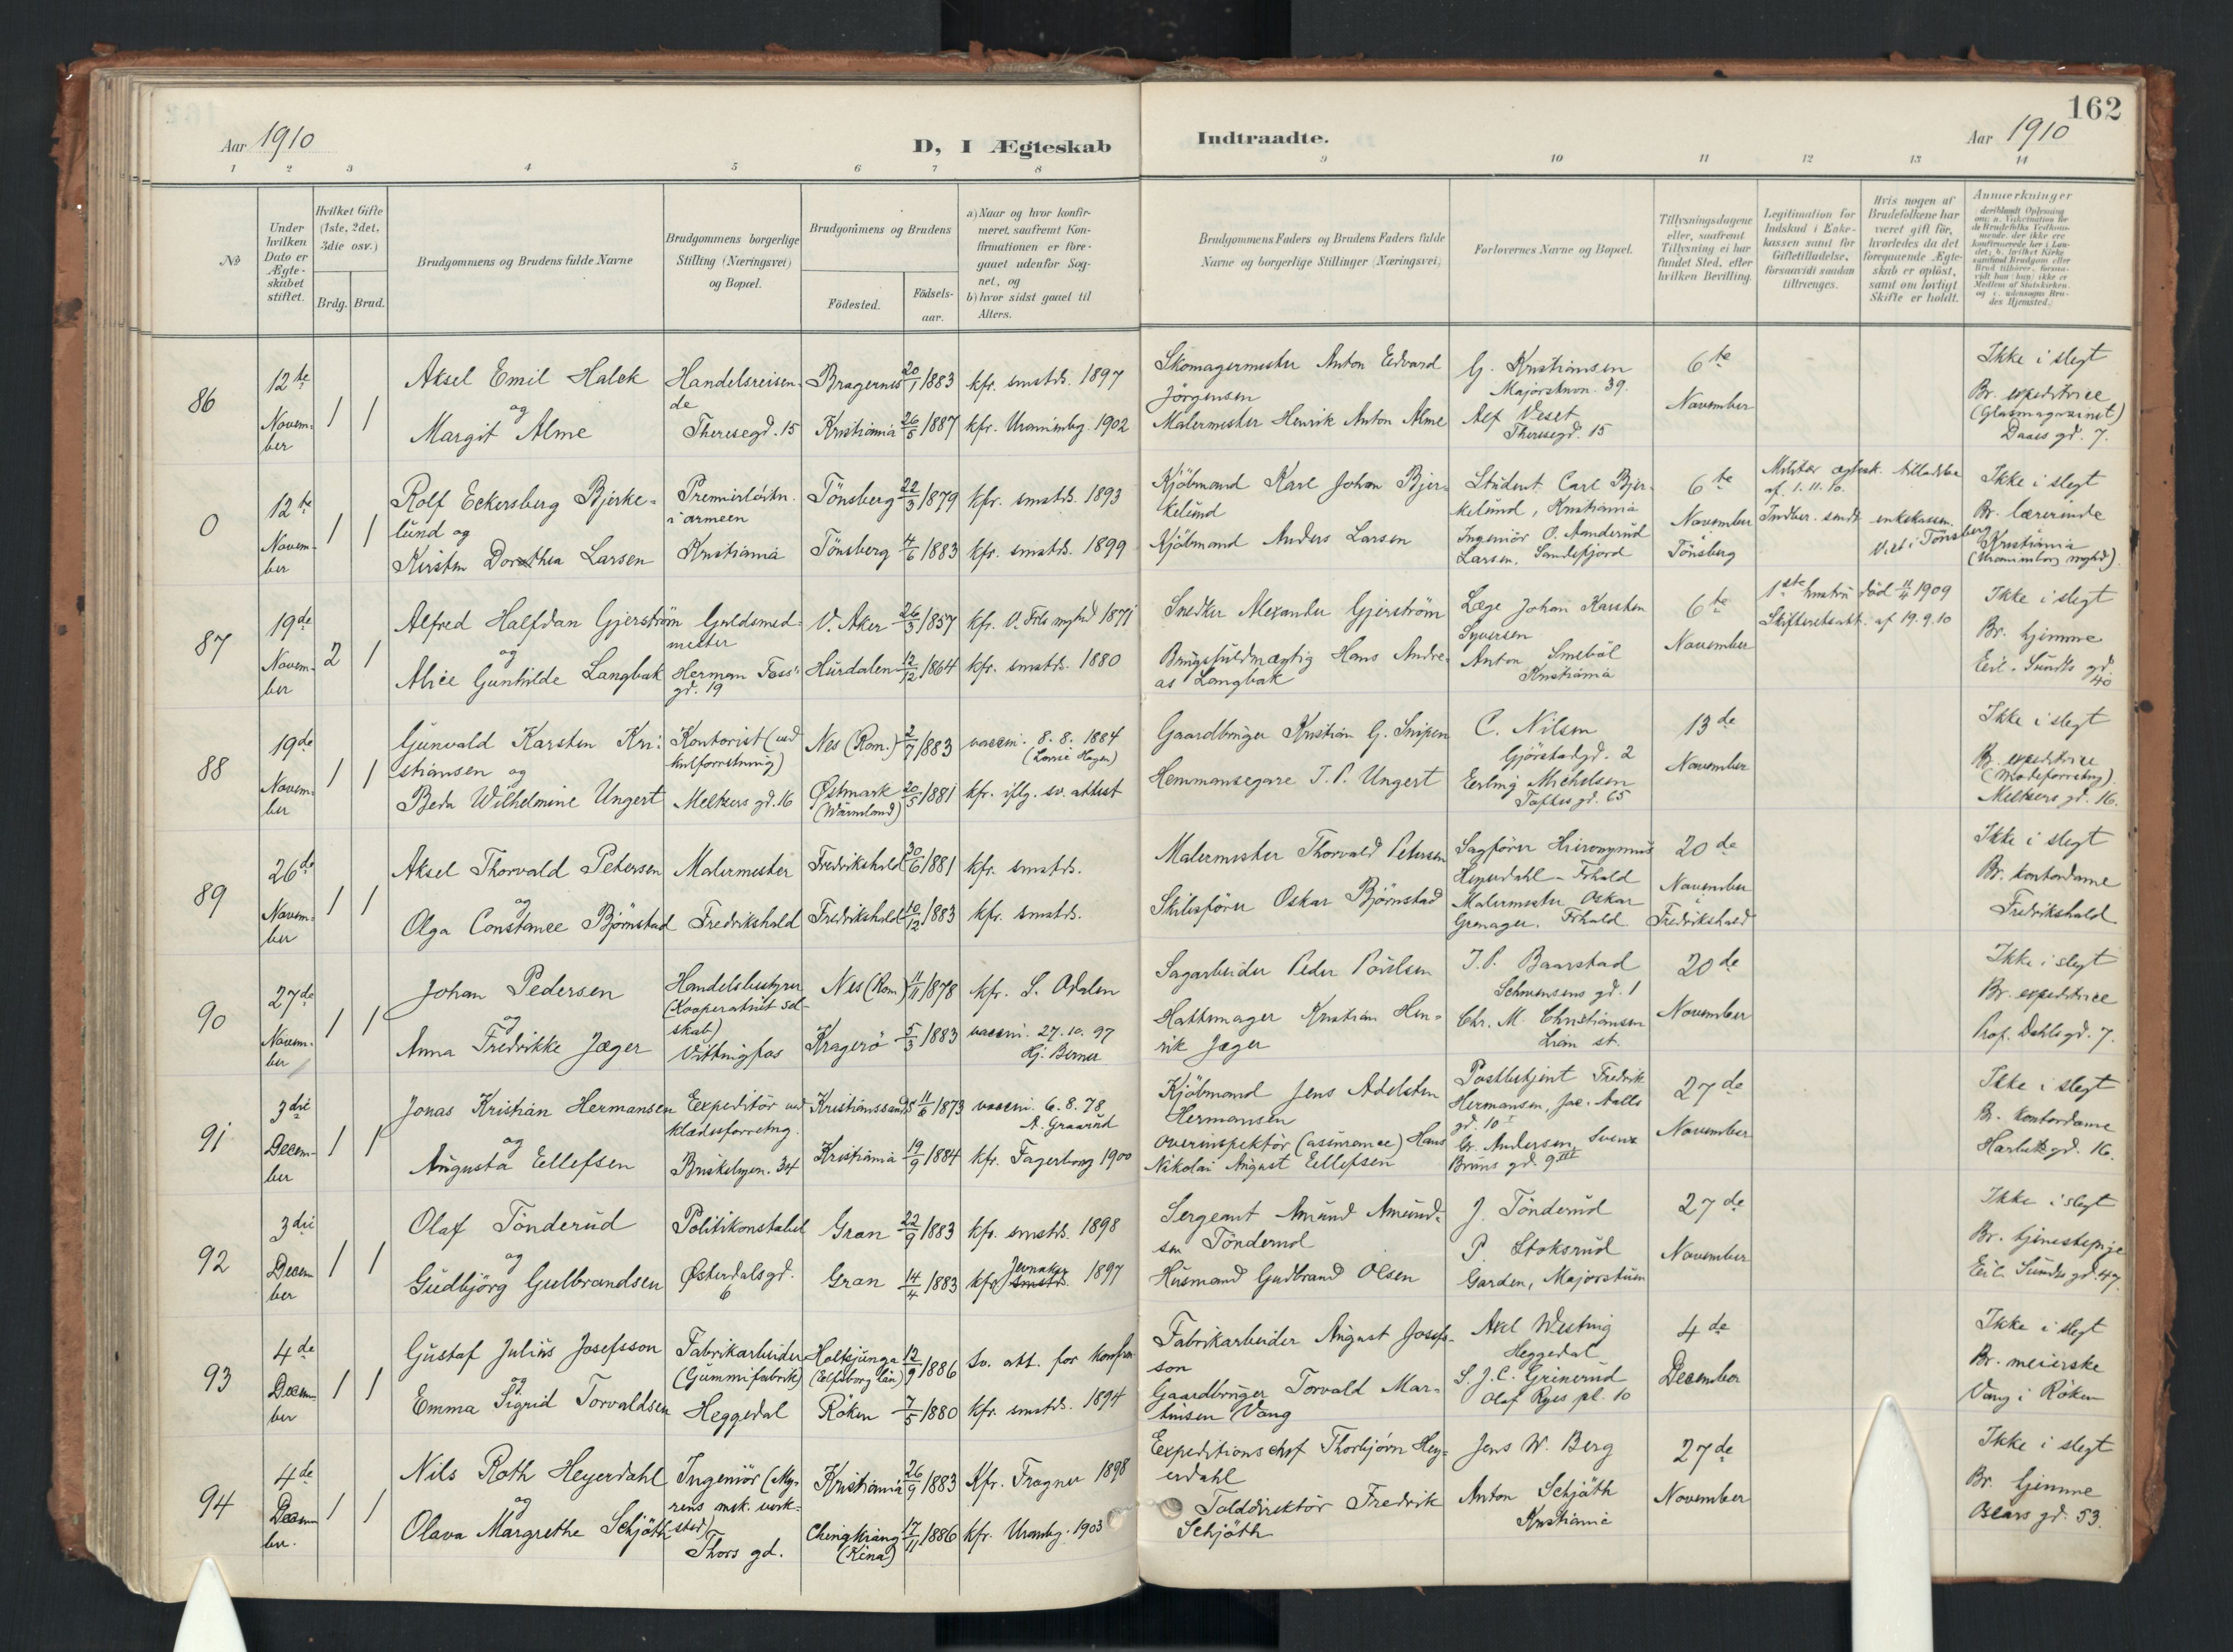 162
Aar 1910
D, I Ægteskab
Indtraadte.
Aar 1910
1 2 3 4 5 6 7 8 9 10 11 12 13 14
№
Under hvilken Dato er Ægteskabet stiftet.
Hvilket Gifte (1ste, 2det, 3die osv.)
Brdg. Brud.
Brudgommens og Brudens fulde Navne
Brudgommens borgerlige Stilling (Næringsvei) og Bopæl.
Brudgommens og Brudens
Födested.
Födsels-aar.
a) Naar og hvor konfirmeret, saafremt Konfirmationen er foregaaet udenfor Sognet, og
b) hvor sidst gaaet til Alters.
Brudgommens Faders og Brudens Faders fulde Navne og borgerlige Stillinger (Næringsvei)
Forlovernes Navne og Bopæl.
Tillysningsdagene eller, saafremt Tillysning ei har fundet Sted, efter hvilken Bevilling.
Legitimation for Indskud i Enkekassen samt for Giftetilladelse, forsaavidt saadan tiltrænges.
Hvis nogen af Brudefolkene har været gift før, hvorledes da det foregaaende Ægteskab er oplöst, samt om lovligt Skifte er holdt.
Anmærkninger
86
12te November
1 1
Aksel Emil Halck
og
Margit Alme
Handelsreisende
Theresegd. 15
Bragernes 20/1 1883 kfr. smstds. 1897
Kristiania 26/5 1887 kfr. Uranienbg. 1902
Skomagermester Anton Edvard Jörgensen
Malermester Henrik Anton Alme
G. Kristiansen
Majorstuvn. 39.
Alf Veset
Theresegd. 15
6te November
Ikke i slegt
Br. expeditrice
(Glasmagasinet)
Daaes gd. 7.
0
12te November
1 1
Rolf Eckersberg Bjerkelund og
Kirsten Dorothea Larsen
Premierløitn. i armeen
Kristiania
Tönsberg 22/3 1879 kfr. smstds. 1893
Tönsberg 4/6 1883 kfr. smstds. 1899
Kjöbmand Karl Johan Bjerkelund
Kjöbmand Anders Larsen
Student Carl Bjerkelund, Kristiania
Ingeniör O. Aanderud Larsen, Sandefjord
6te November
Tönsberg
Militær ægtesk. tilladelse af 1.11.10.
Indber. sendt enkekassen.
Viet i Tönsberg
Ikke i slegt
Br. lærerinde
Kristiania
(Uranienborg mghd).
87
19de November
2 1
Alfred Halfdan Gjerström
og
Alice Gunhilde Langbak
Guldsmedmester
Herman Foss' gd. 19
V. Aker 26/3 1857 kfr. V. Frls mghd 1871
Hurdalen 12/12 1864 kfr. smstds. 1880
Snedker Alexander Gjerström
Brugsfuldmægtig Hans Andreas Langbak
Læge Johan Karsten Syversen
Anton Smebøl
Kristiania
6te November
1ste hustru död 11/4 1909
Skifteretsatt. af 19.9.10
Ikke i slegt
Br. hjemme
Eil. Sundts gd. 40
88
19de November
1 1
Gunvald Karsten Kristiansen og
Beda Wilhelmine Ungert
Kontorist (ved kulforretning)
Meltzers gd. 16
Nes (Rom.) 2/7 1883 vaccin. 8.8.1884
(Lovise Hagen)
Østmark (Wärmland) 20/5 1881 kfr. iflg. sv. attest
Gaardbruger Kristian G. Snipen
Hemmansegare J. P. Ungert
C. Nilsen
Gjörstadgd. 2
Erling Michelsen
Toftes gd. 65
13de November
Ikke i slegt
Br. expeditrice
(Modeforretng).
Meltzers gd. 16.
89
26de November
1 1
Aksel Thorvald Petersen
og
Olga Constance Bjørnstad
Malermester
Fredrikshald
Fredrikshald 30/6 1881 kfr. smstds.
Fredrikshald 10/12 1883 kfr. smstds.
Malermester Thorvald Petersen
Skibsförer Oskar Bjørnstad
Sagförer Hieronymus Heyerdahl - Frhald
Malermester Oskar Grenager. Frhald
20de November
i
Fredrikshald
Ikke i slegt
Br. kontordame
Fredrikshald
90
27de November
1 1
Johan Pedersen
og
Anna Fredrikke Jæger
Handelsbestyrer (Kooperativt selskab)
Vittingfos
Nes (Rom.) 11/11 1878 kfr. S. Odalen
Kragerö 5/3 1883 vaccin. 27.10.97
Hj. Berner
Sagarbeider Peder Povelsen
Hattemager Kristian Henrik Jæger
J. P. Baarstad
Schwensens gd. 1
Chr. M. Christiansen
Lien st.
20de November
Ikke i slegt
Br. expeditrice
Prof. Dahls gd. 7.
91
3die December
1 1
Jonas Kristian Hermansen
og
Augusta Eellefsen
Expeditör ved klædesforretng.
Briskebyvn. 34
Kristianssand S 11/6 1873 vaccin. 6.8.78
A. Graarud
Kristiania 19/9 1884 kfr. Fagerborg 1900
Kjöbmand Jens Adelsten Hermansen
Overinspektör (assurance) Hans Nikolai August Eellefsen
Postbetjent Fredrik Hermansen, Jac. Aalls gd. 10 I
Gr. Andersen, Svend Bruns gd. 9 III
27de November
Ikke i slegt
Br. kontordame
Harbitz gd. 16.
92
3die December
1 1
Olaf Tönderud
og
Gudbjörg Gulbrandsen
Politikonstabel
Østerdalsgd. 6
Gran 22/9 1883 kfr. smstds. 1898
Gran 14/4 1883 kfr. Jevnaker smstds. 1897
Sergeant Amund Amundsen Tönderud
Husmand Gudbrand Olsen
J. Tönderud
P. Stoksrud
Garden, Majorstuen
27de November
Ikke i slegt
Br. tjenestepige
Eil. Sundts gd. 47.
93
4de December
1 1
Gustaf Julius Josefsson
og
Emma Sigrid Torvaldsen
Fabrikarbeider (Gummifabrik)
Heggedal
Holtsjunga (Elfsborg län) 12/9 1886 Sv. att. for konfirm
Röken 7/5 1880 kfr. smstds. 1894
Fabrikarbeider August Josefsson
Gaardbruger Torvald Martinsen Vang
Axel Westing
Heggedal
S. J. C. Grinerud
Olaf Ryes pl. 10
4de December
Ikke i slegt
Br. meierske
Vang i Röken
94
4de December
1 1
Nils Roth Heyerdahl
og
Olava Margrethe Schjöth
Ingeniör (Myrens mek. verksted)
Thors gd.
Kristiania 26/9 1883 Kfr. Frogner 1898
Chingkiang (Kina) 17/11 1886 kfr. Uranbg. 1903
Expeditionschef Thorbjørn Heyerdahl
Tolddirektör Fredrik Schjöth
Jens W. Berg
Anton Schjöth
Kristiania
27de November
Ikke i slegt
Br. hjemme
Oscars gd. 53.